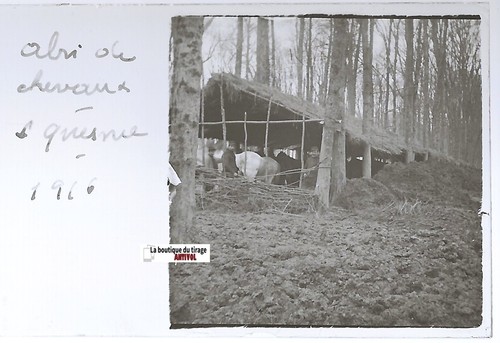 abri de
chevaux
-
s Quesme
-
1916
La boutique du tirage
ANTIVOL